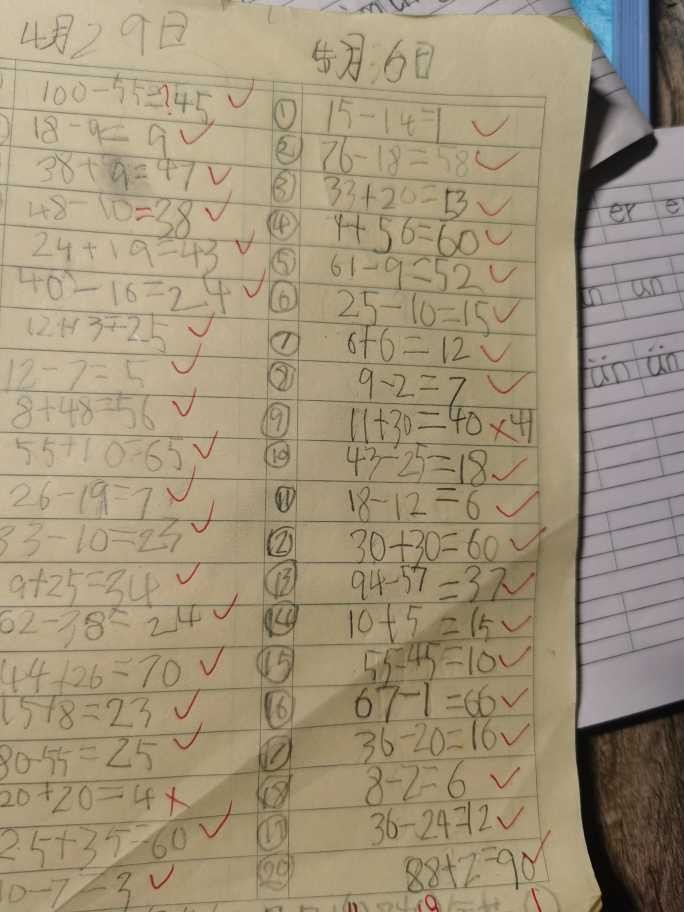 4月29日
100-55=45
18-9=9
38+9=47
48-10=38
24+19=43
40-16=24
12+13=25
12-7=5
8+48=56
55+10=65
26-19=7
33-10=23
9+25=34
62-38=24
44+26=70
15+8=23
80-55=25
20+20=4
25+35=60
10-7=3
4月6日
① 15-14=1
② 76-18=58
③ 33+20=53
④ 4+56=60
⑤ 61-9=52
⑥ 25-10=15
⑦ 6+6=12
⑧ 9-2=7
⑨ 11+30=40 41
⑩ 43-25=18
⑪ 18-12=6
⑫ 30+30=60
⑬ 94-57=37
⑭ 10+5=15
⑮ 55-45=10
⑯ 67-1=66
⑰ 36-20=16
⑱ 8-2=6
⑲ 36-24=12
⑳ 88+2=90
er
un
ün ün